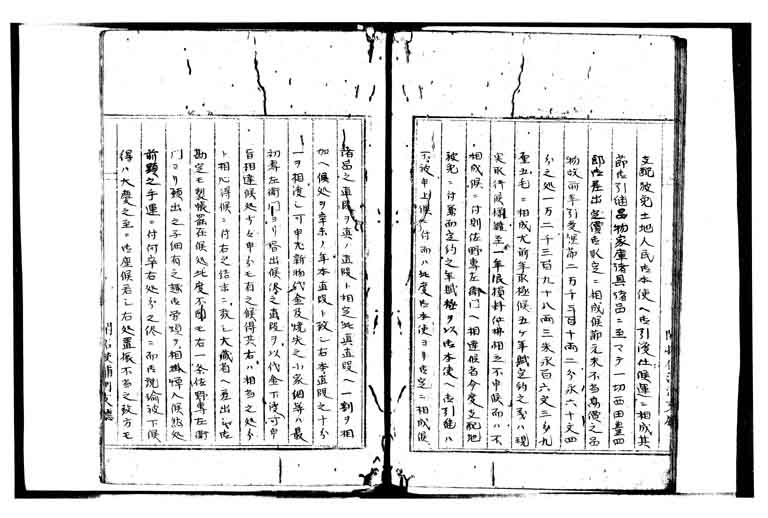 支配被免土地人民御本使へ御引渡仕候運ニ相成其
節御引継品物家庫諸具諸品ニ至マテ一切西田豊四
郎御差出定價御取定ニ相成候節元来不当高價之品
物故前年引受候節二万千三百十両二分永六十文四
分之処一万二千三百九十八両三朱永百六文三分九
至五毛ニ相成尤前年取極候五ケ年賦定約之義ハ現
実取行候様難至一年限損料仕拂相立不申候而ハ不
相成候ニ付則佐野専左衛門へ相達候当今度支配地
被免ニ付兼而定約之年賦極ヲ以御本使へ御引継ハ
不被申上候ニ付而ハ此度御本使ヨリ御定ニ相成候
諸品之直段ヲ真ノ直段ト相定此真直段へ一割ヲ相
加へ候処ヲ辛未ノ年本直段ト致し右本直段之十分
一ヲ相渡し可申尤新物代金及焼失之小家個等ハ最
初専左衛門ヨリ差出候侭之直段ヲ以代金下渡可申
旨相達候処少々申分モ有之候得共右ハ相当之処分
ト相心得候ニ付右之結末ニ致し大蔵省へ差出し御
勘定モ製帳罷在候処此度不図モ右一条佐野専左衛
門ヨリ願出之子細有之趣御書類ヲ相掛悼入候然処
前顕之手運ニ付何卒右処分之侭ニ而御説諭被下候
得ハ大慶之至ニ御座候若し右処置振不当之致方モ